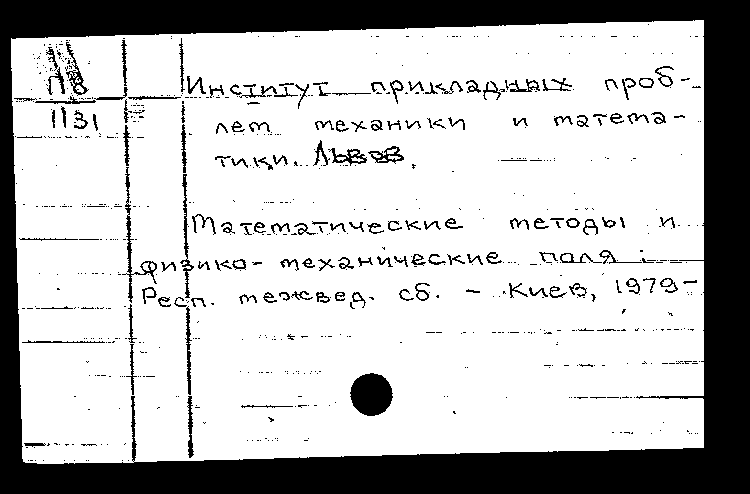 П8
1131
Институт прикладных проб-
лем механики и матема-
тики. Львов.
Математические методы и
физико-механические поля :
Респ. межвед. сб. - Киев, 1979-